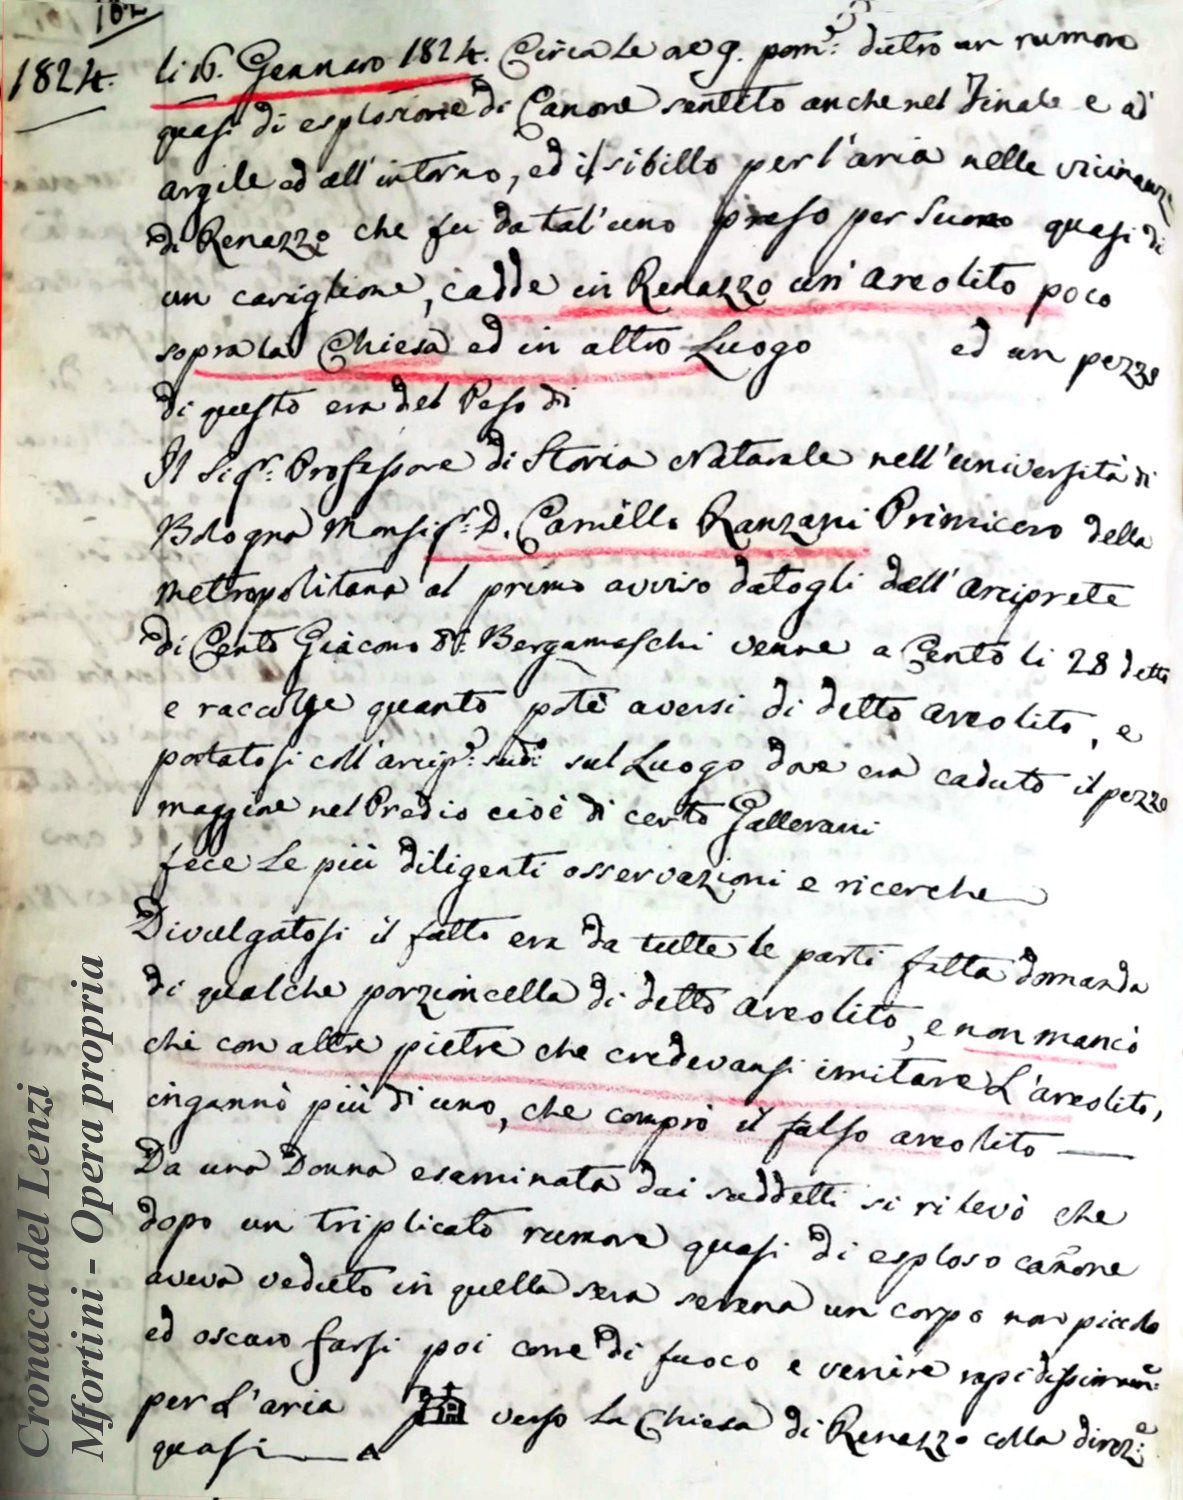 162
1824.
li 16. Gennaro 1824. Circa le ore 9. pom.e dietro un rumore
quasi di esplosione di Canone sentito anche nel Finale e ad
argile ed all'intorno, ed il sibillo per l'aria nelle vicinanze
di Renazzo che fu da tal'uno preso per Suono quasi di
un cariglione, cadde in Renazzo un' areolito poco
sopra la Chiesa ed in altro Luogo ed un pezzo
di questo era del Peso di
Il Sigr. Professore di Storia Naturale nell'università di
Bologna Monsigr. D. Camillo Ranzani Primicero della
Metropolitana al primo avviso datogli dall' Arciprete
di Cento Giacomo Dr. Bergamaschi venne a Cento li 28 detto
e raccolse quanto potè aversi di detto areolito, e
portatosi coll'arcipr.e sudo. sul Luogo dove era caduto il pezzo
maggiore nel Predio cioè di certo Gallerani
fece le più diligenti osservazioni e ricerche
Divulgatosi il fatto era da tutte le parti fatta domanda
di qualche porzioncella di detto areolito, e non mancò
chi con altre pietre che credevansi imitare L'areolito,
ingannò più di uno, che comprò il falso areolito
Da una Donna esaminata dai suddetti si rilevò che
dopo un triplicato rumore quasi di esploso canone
aveva veduto in quella sera serena un corpo non piccolo
ed oscuro farsi poi come di fuoco e venire rapidissimam.e
per L'aria verso La Chiesa di Renazzo colla direz.e
quasi a
Cronaca del Lenzi
Mfortini - Opera propria